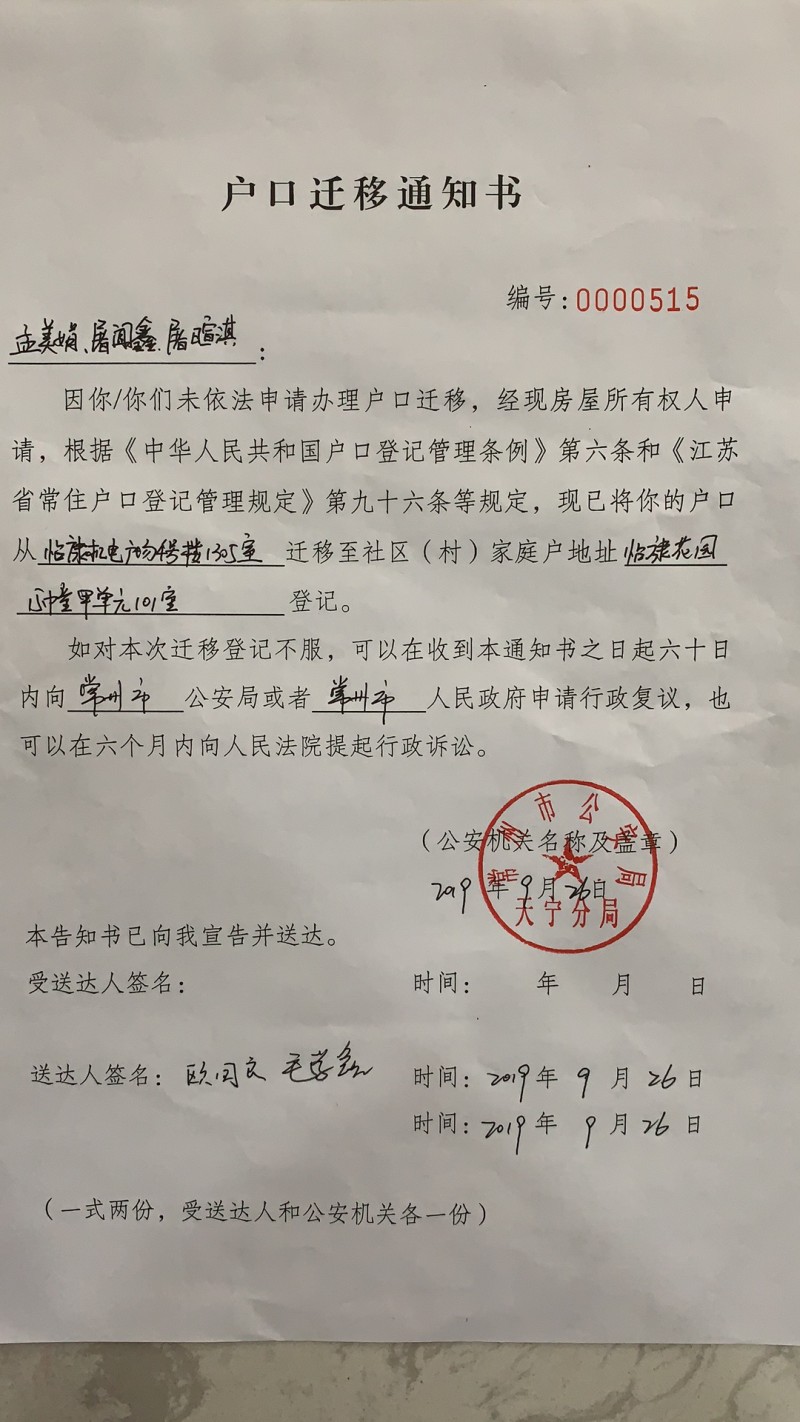 户口迁移通知书
编号:0000515
孟美娟、屠闻鑫、屠暄淇:
因你/你们未依法申请办理户口迁移,经现房屋所有权人申
请,根据《中华人民共和国户口登记管理条例》第六条和《江苏
省常住户口登记管理规定》第九十六条等规定,现已将你的户口
从 1305室 迁移至社区(村)家庭户地址 花园
单元101室 登记。
如对本次迁移登记不服,可以在收到本通知书之日起六十日
内向 常州市 公安局或者 常州市 人民政府申请行政复议,也
可以在六个月内向人民法院提起行政诉讼。
(公安机关名称及盖章)
2019年9月26日
常州市公安局
天宁分局
本告知书已向我宣告并送达。
受送达人签名: 时间: 年 月 日
送达人签名: 时间:2019年9月26日
时间:2019年9月26日
(一式两份,受送达人和公安机关各一份)